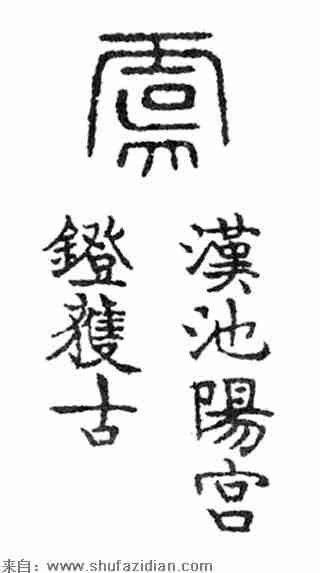 漢池陽宮
鐙獲古
来自：www.shufazidian.com